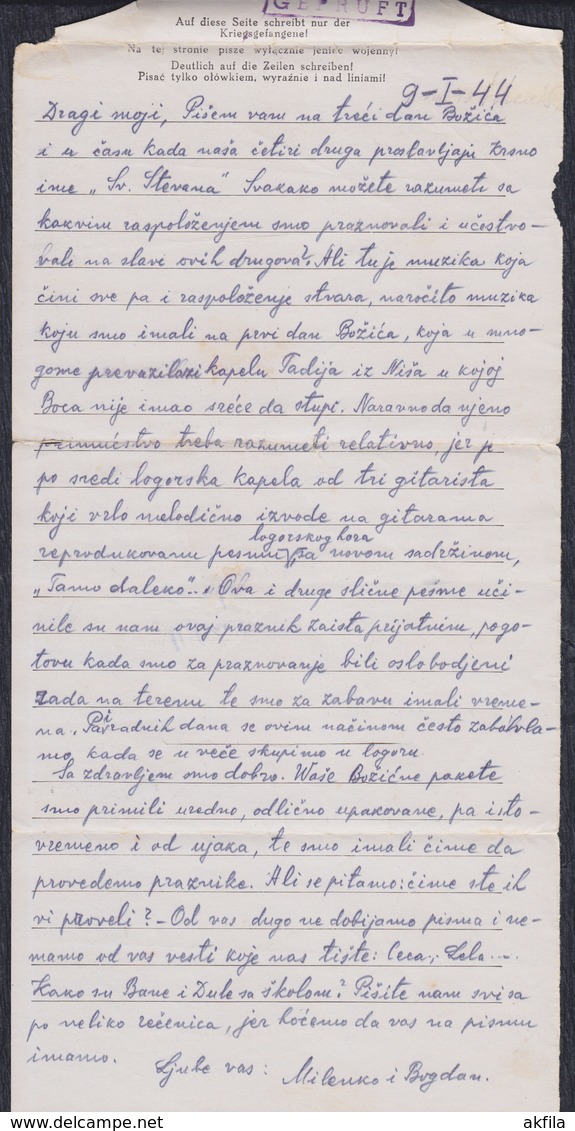 GEPRÜFT
Auf diese Seite schreibt nur der
Kriegsgefangene!
Na tej stronie pisze wyłącznie jeniec wojenny!
Deutlich auf die Zeilen schreiben!
Pisać tylko ołówkiem, wyraźnie i nad liniami!
9-I-44
Dragi moji, Pišem vam na treći dan Božića
i u času kada naša četiri druga proslavljaju krsno
ime „Sv. Stevana" Svakako možete razumeti sa
kakvim raspoloženjem smo praznovali i učestvo-
vali na slavi ovih drugova?. Ali tu je muzika koja
čini sve pa i raspoloženje stvara, naročito muzika
koju smo imali na prvi dan Božića, koja u mno-
gome prevazilazi kapelu Tadija iz Niša u kojoj
Boca nije imao sreće da stupi. Naravno da njeno
prvenstvo treba razumeti relativno, jer je
po sredi logorska kapela od tri gitarista
koji vrlo melodično izvode na gitarama
logorskog hora
reprodukovanu pesmu sa novom sadržinom,
„Tamo daleko"... Ova i druge slične pesme uči-
nile su nam ovaj praznik zaista prijatnim, pogo-
tovu kada smo za praznovanje bili oslobodjeni
rada na terenu te smo za zabavu imali vreme-
na. Pa i radnih dana se ovim načinom često zabavlja-
mo, kada se u veče skupimo u logoru.
Sa zdravljem smo dobro. Vaše Božićne pakete
smo primili uredno, odlično upakovane, pa isto-
vremeno i od ujaka, te smo imali čime da
provedemo praznike. Ali se pitamo: čime ste ih
vi proveli? - Od vas dugo ne dobijamo pisma i ne-
mamo od vas vesti koje nas tište: Ceca, Lela ...
Kako su Bane i Dule sa školom? Pišite nam svi sa
po neliko rečenica, jer hoćemo da vas na pismu
imamo.
Ljube vas:
Milenko i Bogdan.
akfila